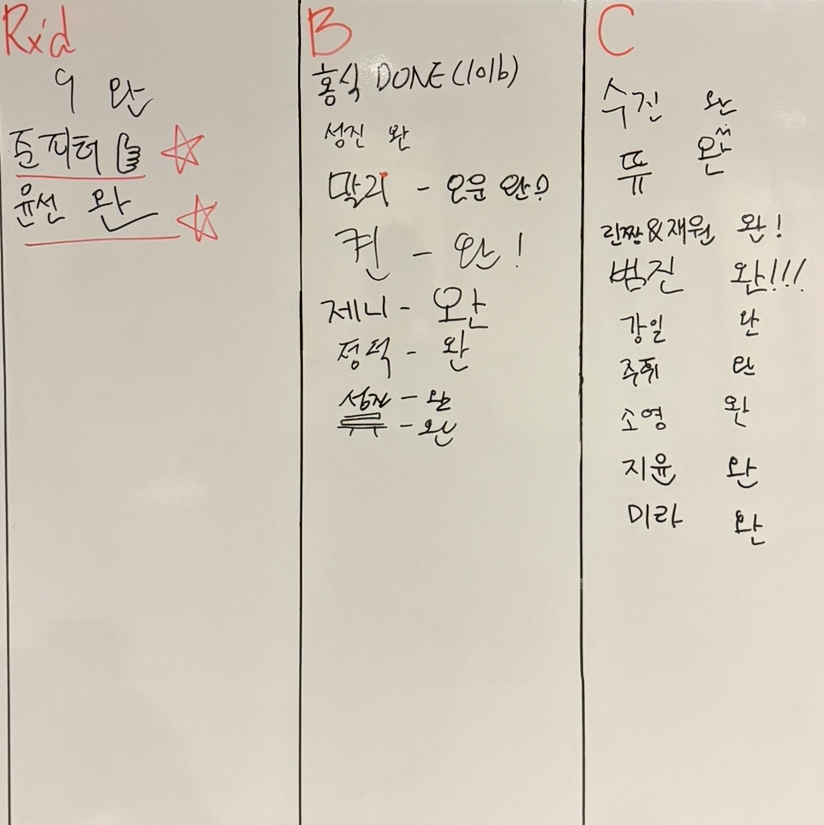 Rx'd
9 완
준피터 👍 ☆
윤선 완 ☆
B
홍식 DONE (101b)
성진 완
말리 - 오운완
퀸 - 완!
제니 - 완
정적 - 완
- 완
- 완
C
수진 완
뜌 완
린짱&재원 완!
범진 완!!!
강일 완
주휘 완
소영 완
지윤 완
미라 완